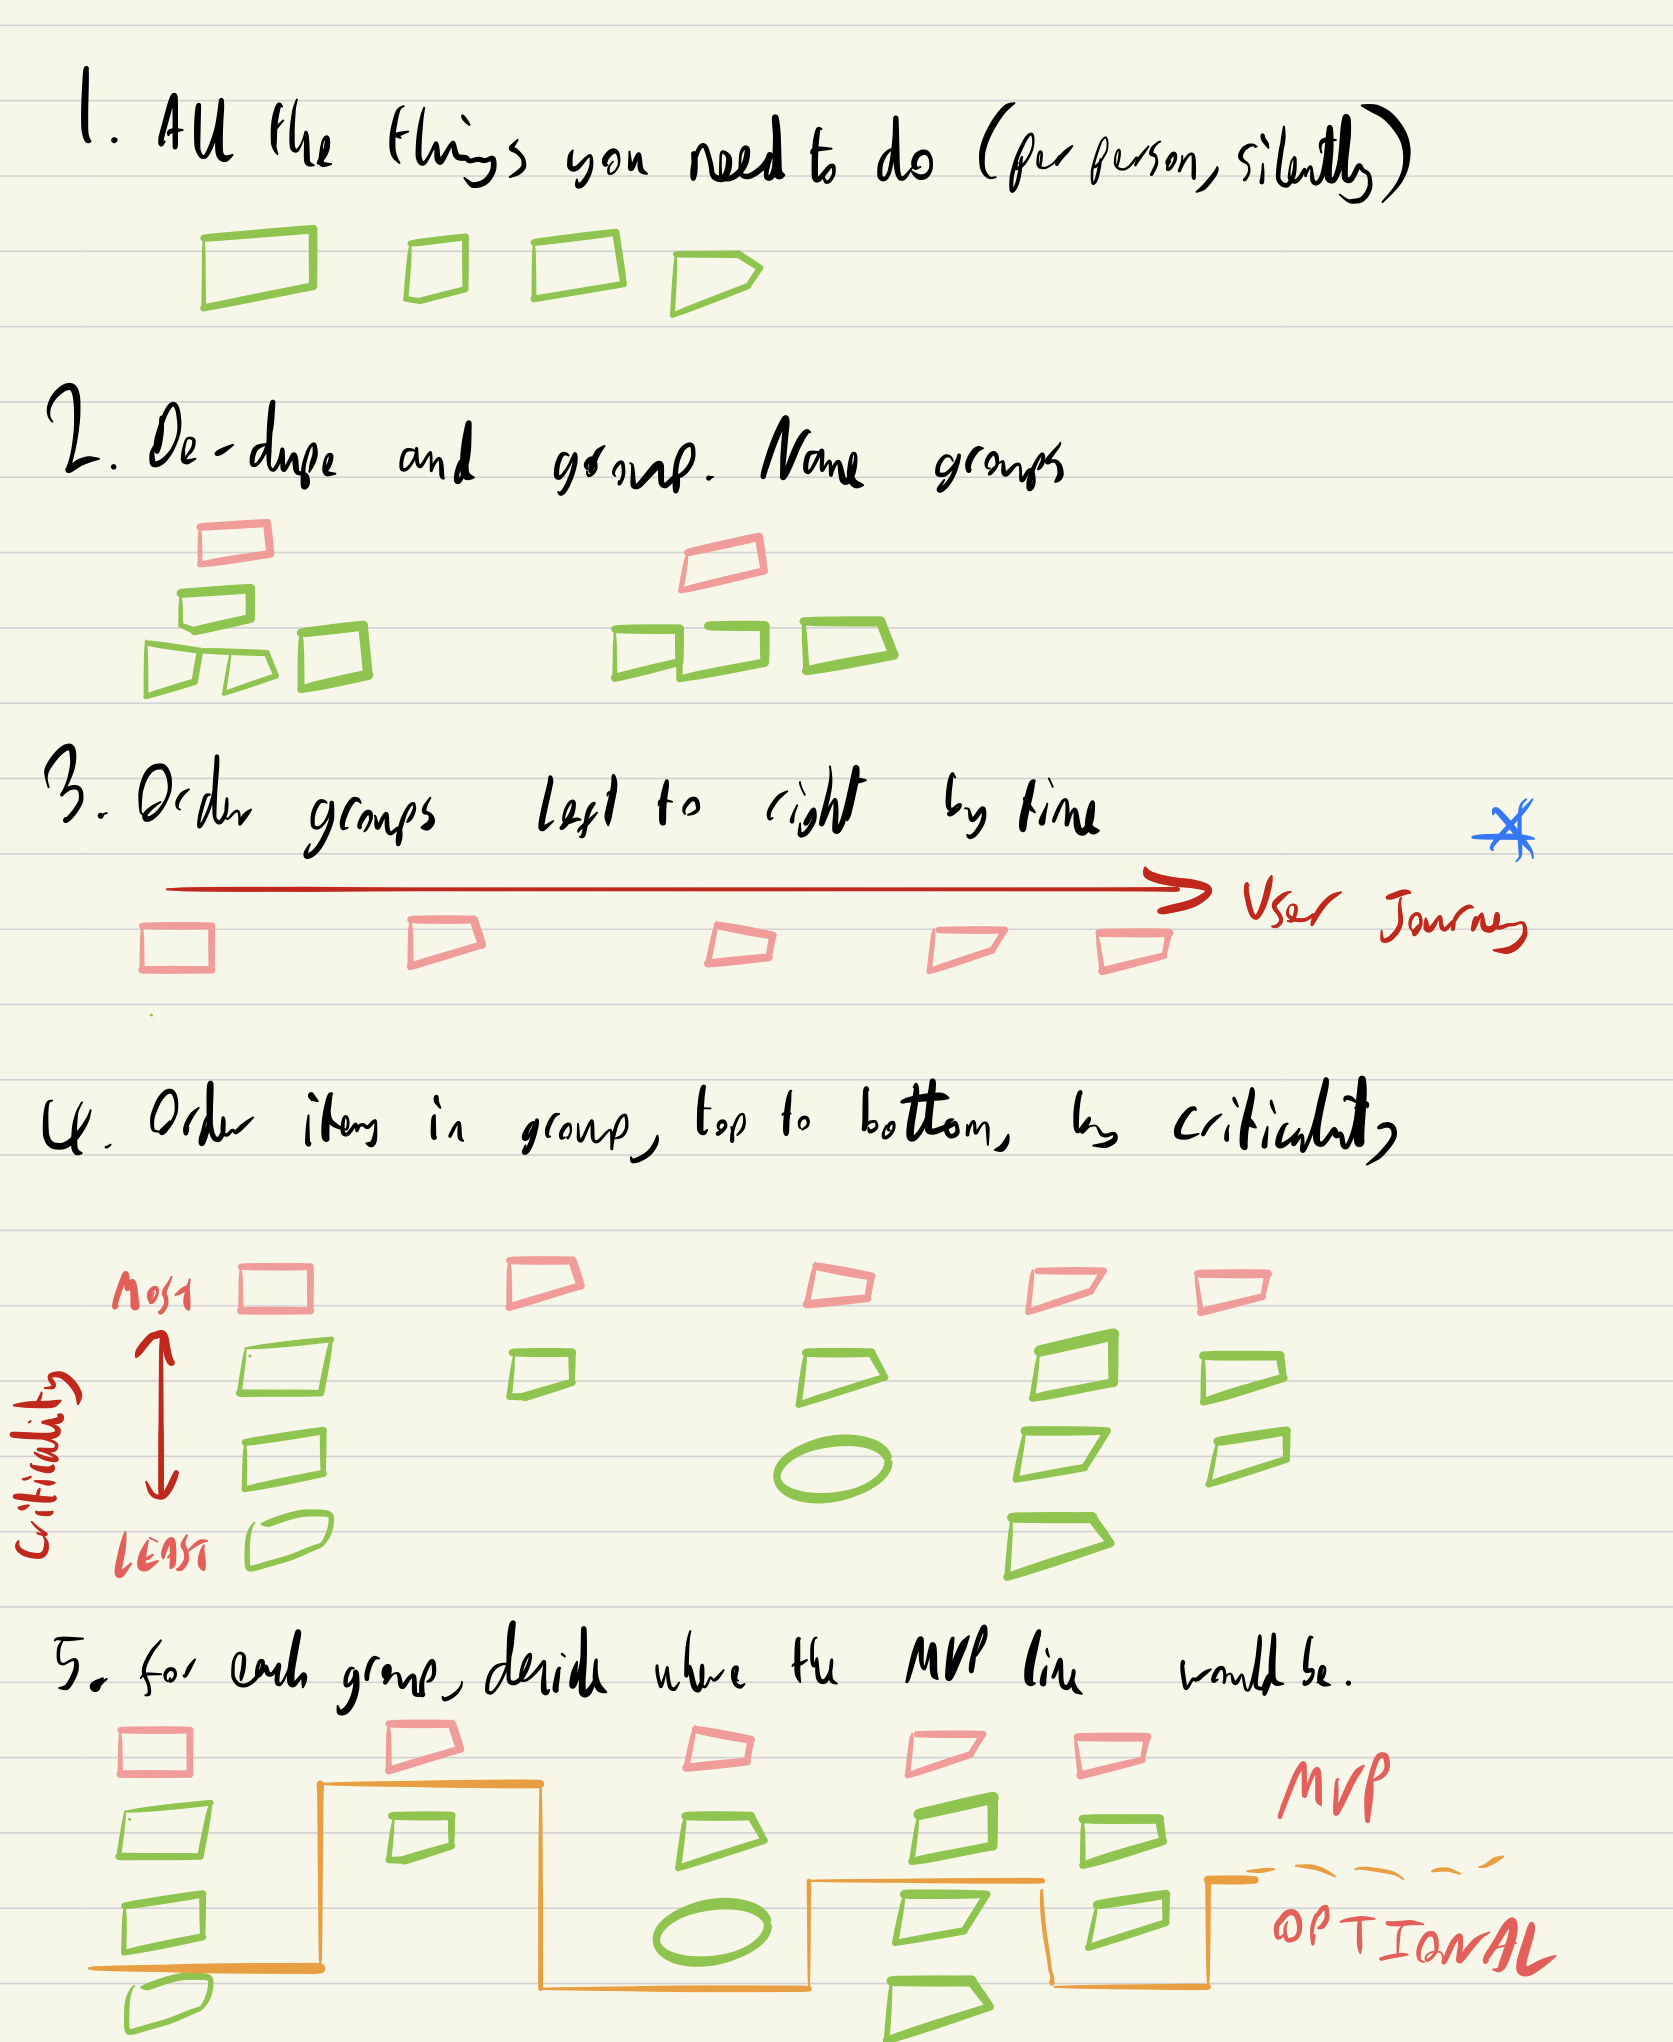 1. All the things you need to do (per person, silently)
2. De-dupe and group. Name groups
3. Order groups left to right by time
User Journey
4. Order items in group, top to bottom, by criticality
Most
Criticality
LEAST
5. for each group, decide where the MVP line would be.
MVP
OPTIONAL